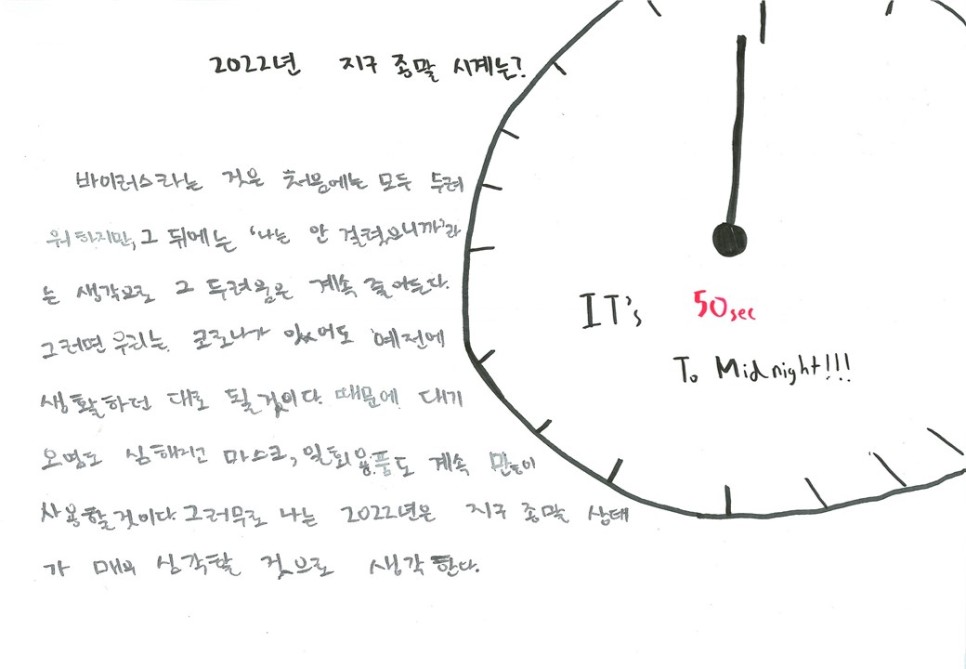 2022년 지구 종말 시계는?
바이러스라는 것은 처음에는 모두 두려
워하지만, 그 뒤에는 '나는 안 걸렸으니까'라
는 생각으로 그 두려움은 계속 줄어든다.
그러면 우리는 코로나가 있어도 예전에
생활하던 대로 될것이다. 때문에 대기
오염도 심해지고 마스크, 일회용품도 계속 많이
사용할것이다. 그러므로 나는 2022년은 지구 종말 상태
가 매우 심각할 것으로 생각한다.
IT's 50sec
To Midnight!!!